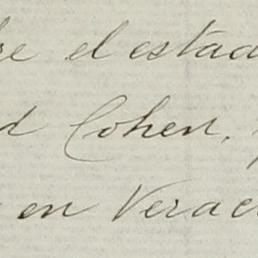 re el estad
d Cohen,
en Verac